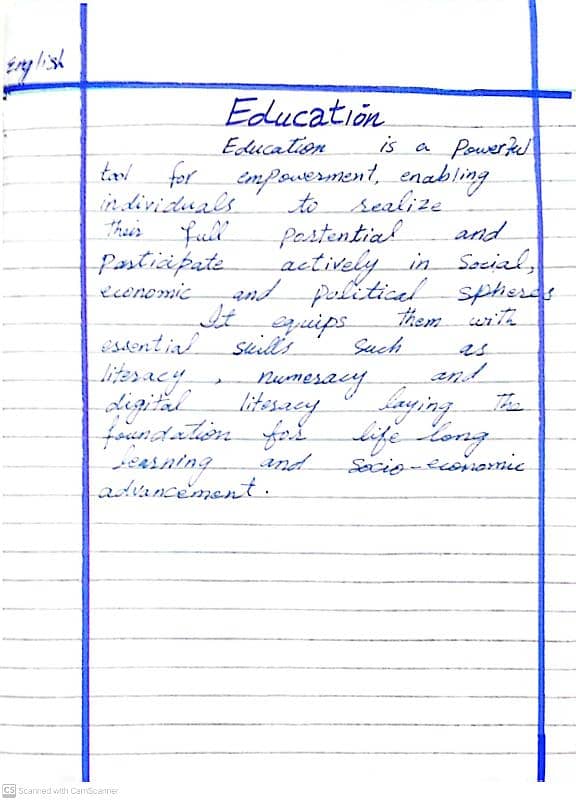 English
Education
Education is a Powerful
tool for empowerment, enabling
individuals to realize
their full Portential and
Participate actively in Social,
economic and Political spheres
It equips them with
essential skills Such as
literacy , numeracy and
digital literacy laying The
foundation for life long
learning and socio-economic
advancement.
CS Scanned with CamScanner